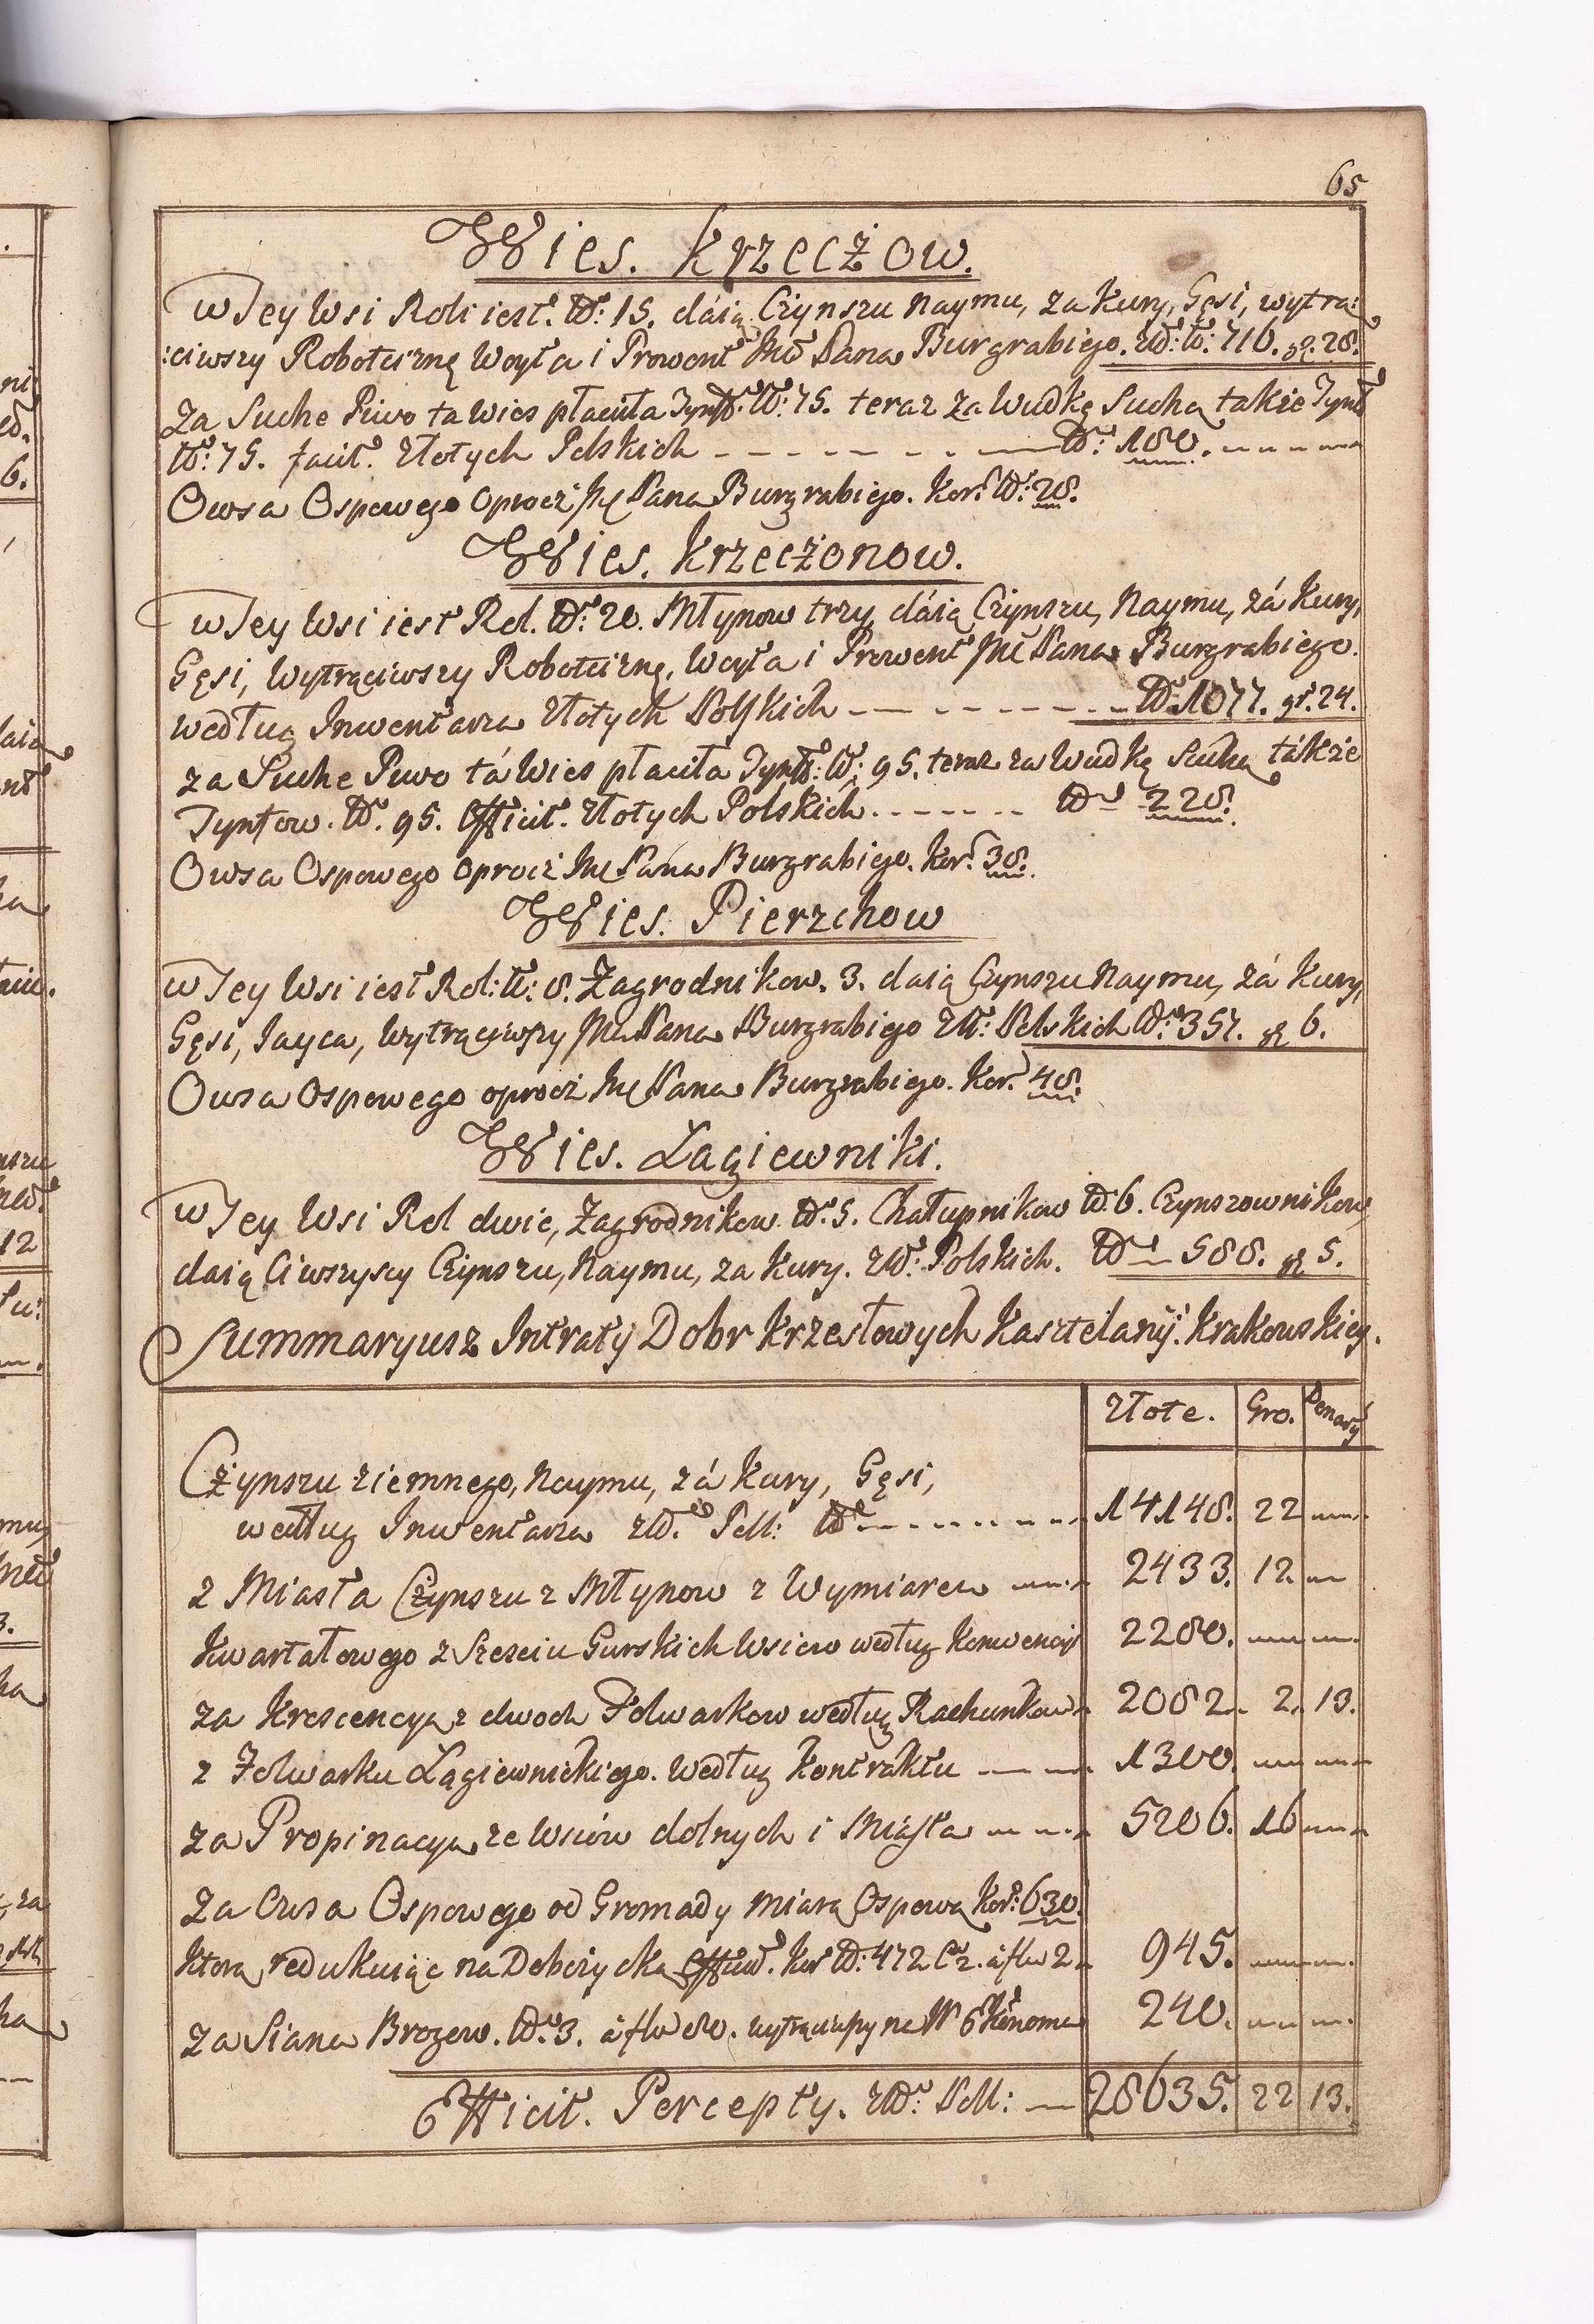 65
Wies. Krzeczow.
w Tey Wsi Roli iest. No: 15. daią Czynszu Naymu, za Kury, Gęsi, wytrą:
:ciwszy Robotciznę Woyta i Prowent Mć Pana Burgrabiego. Zł: No: 716. gr. 28.
Za Suche Piwo ta Wies płaciła Tynf: No: 75. teraz za Wudkę Suchą także Tynf
No: 75. facit. Złotych Polskich No: 180.
Owsa Ospowego oprocz Mć Pana Burgrabiego. Kor: No: 28.
Wies. Krzeczonow.
w Tey Wsi iest Rol. No: 20. Młynow trzy, dáią Czynszu, Naymu, zá Kury,
Gęsi, Wytrąciwszy Robotciznę, Woyta i Prowent Mć Pana Burgrabiego.
według Inwentarza Złotych Polskich No: 1077. gr. 24.
za Suche Piwo tá Wies płaciła Tynf: No: 95. teraz za Wudkę Suchą tákże
Tynfow. No. 95. Efficit. Złotych Polskich No 228.
Owsa Ospowego oprocz Mć Pana Burgrabiego. Kor: 38.
Wies. Pierzchow
w Tey Wsi iest Rol: No: 8. Zagrodnikow. 3. daią Czynszu Naymu, zá Kury,
Gęsi, Jayca, Wytrąciwszy Mć Pana Burgrabiego Zł: Polskich No: 357. gr 6.
Owsa Ospowego oprocz Mć Pana Burgrabiego. Kor. 48.
Wies. Łagiewniki.
w Tey Wsi Rol dwie, Zagrodnikow No. 5. Chałupnikow No 6. Czynszownikow,
daią Ciwszyscy Czynszu, Naymu, za Kury. Zł: Polskich. No 588. gr 5.
Summaryusz Intraty Dobr Krzesłowych Kasztelanÿ: Krakowskiey.
Złote. Gro. Denarÿ
Czynszu ziemnego, Naymu, zá Kury, Gęsi,
według Inwentarza Zł. Poll: No 14148. 22
z Miasta Czynszu z Młynow z Wymiarem 2433. 12.
Kwartałowego z Szesciu Gurskich Wsiow według Konwencÿi 2280.
za Krescencyą z dwoch Folwarkow według Rachunkow 2082. 2. 13.
z Folwarku Łagiewnickiego. Według Kontraktu 1300.
za Propinacyą ze Wsiów dolnych i Miásta 5206. 16
Za Owsa Ospowego od Gromady miarą Ospową Kor: 630.
Ktorą redukuiąc na Dobczycką Efficit. Kor No: 472 Cz. á flo 2 945.
Za Siana Brogow. No. 3. á flo 80. wytrąciwszy na W Ekonoma 240.
Efficit. Percepty. Zł: Poll: 28635. 22 13.